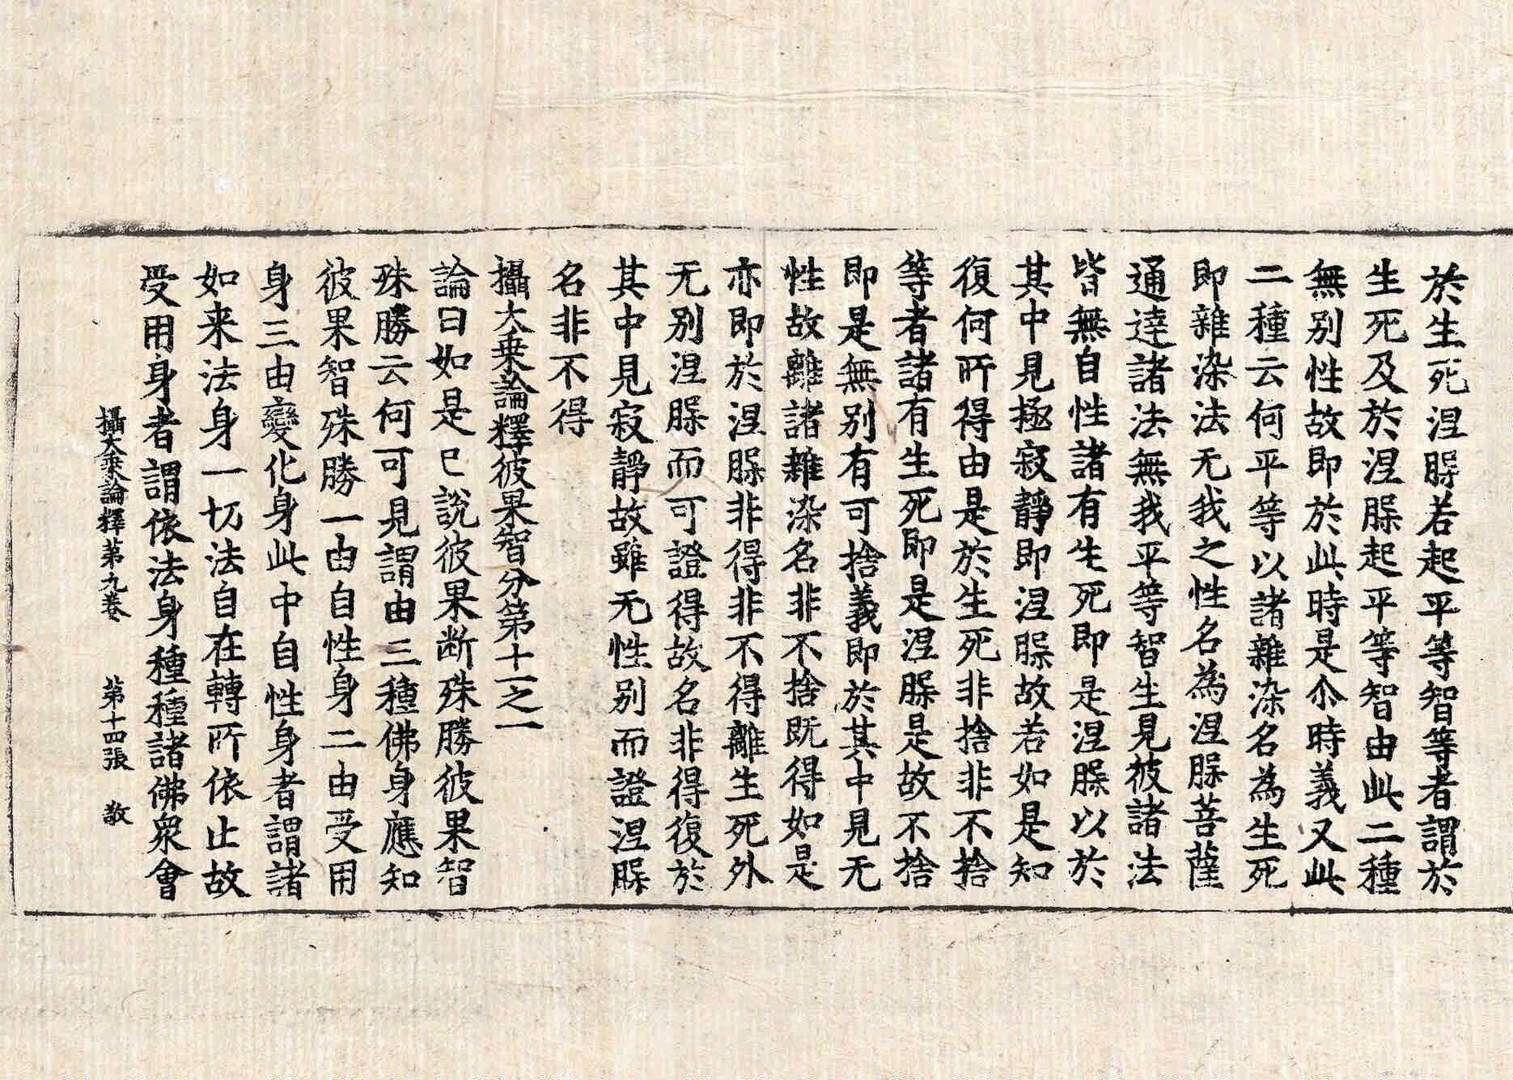 於生死涅槃若起平等智等者謂於
生死及於涅槃起平等智由此二種
無别性故即於此時是尒時義又此
二種云何平等以諸雜染名為生死
即雜染法无我之性名為涅槃菩薩
通達諸法無我平等智生見彼諸法
皆無自性諸有生死即是涅槃以於
其中見極寂靜即涅槃故若如是知
復何所得由是於生死非捨非不捨
等者諸有生死即是涅槃是故不捨
即是無别有可捨義即於其中見无
性故離諸雜染名非不捨既得如是
亦即於涅槃非得非不得離生死外
无别涅槃而可證得故名非得復於
其中見寂靜故雖无性别而證涅槃
名非不得
攝大乗論釋彼果智分第十一之一
論曰如是已説彼果断殊勝彼果智
殊勝云何可見謂由三種佛身應知
彼果智殊勝一由自性身二由受用
身三由變化身此中自性身者謂諸
如来法身一切法自在轉所依止故
受用身者謂依法身種種諸佛衆會
攝大乗論釋第九卷 第十四張 敢